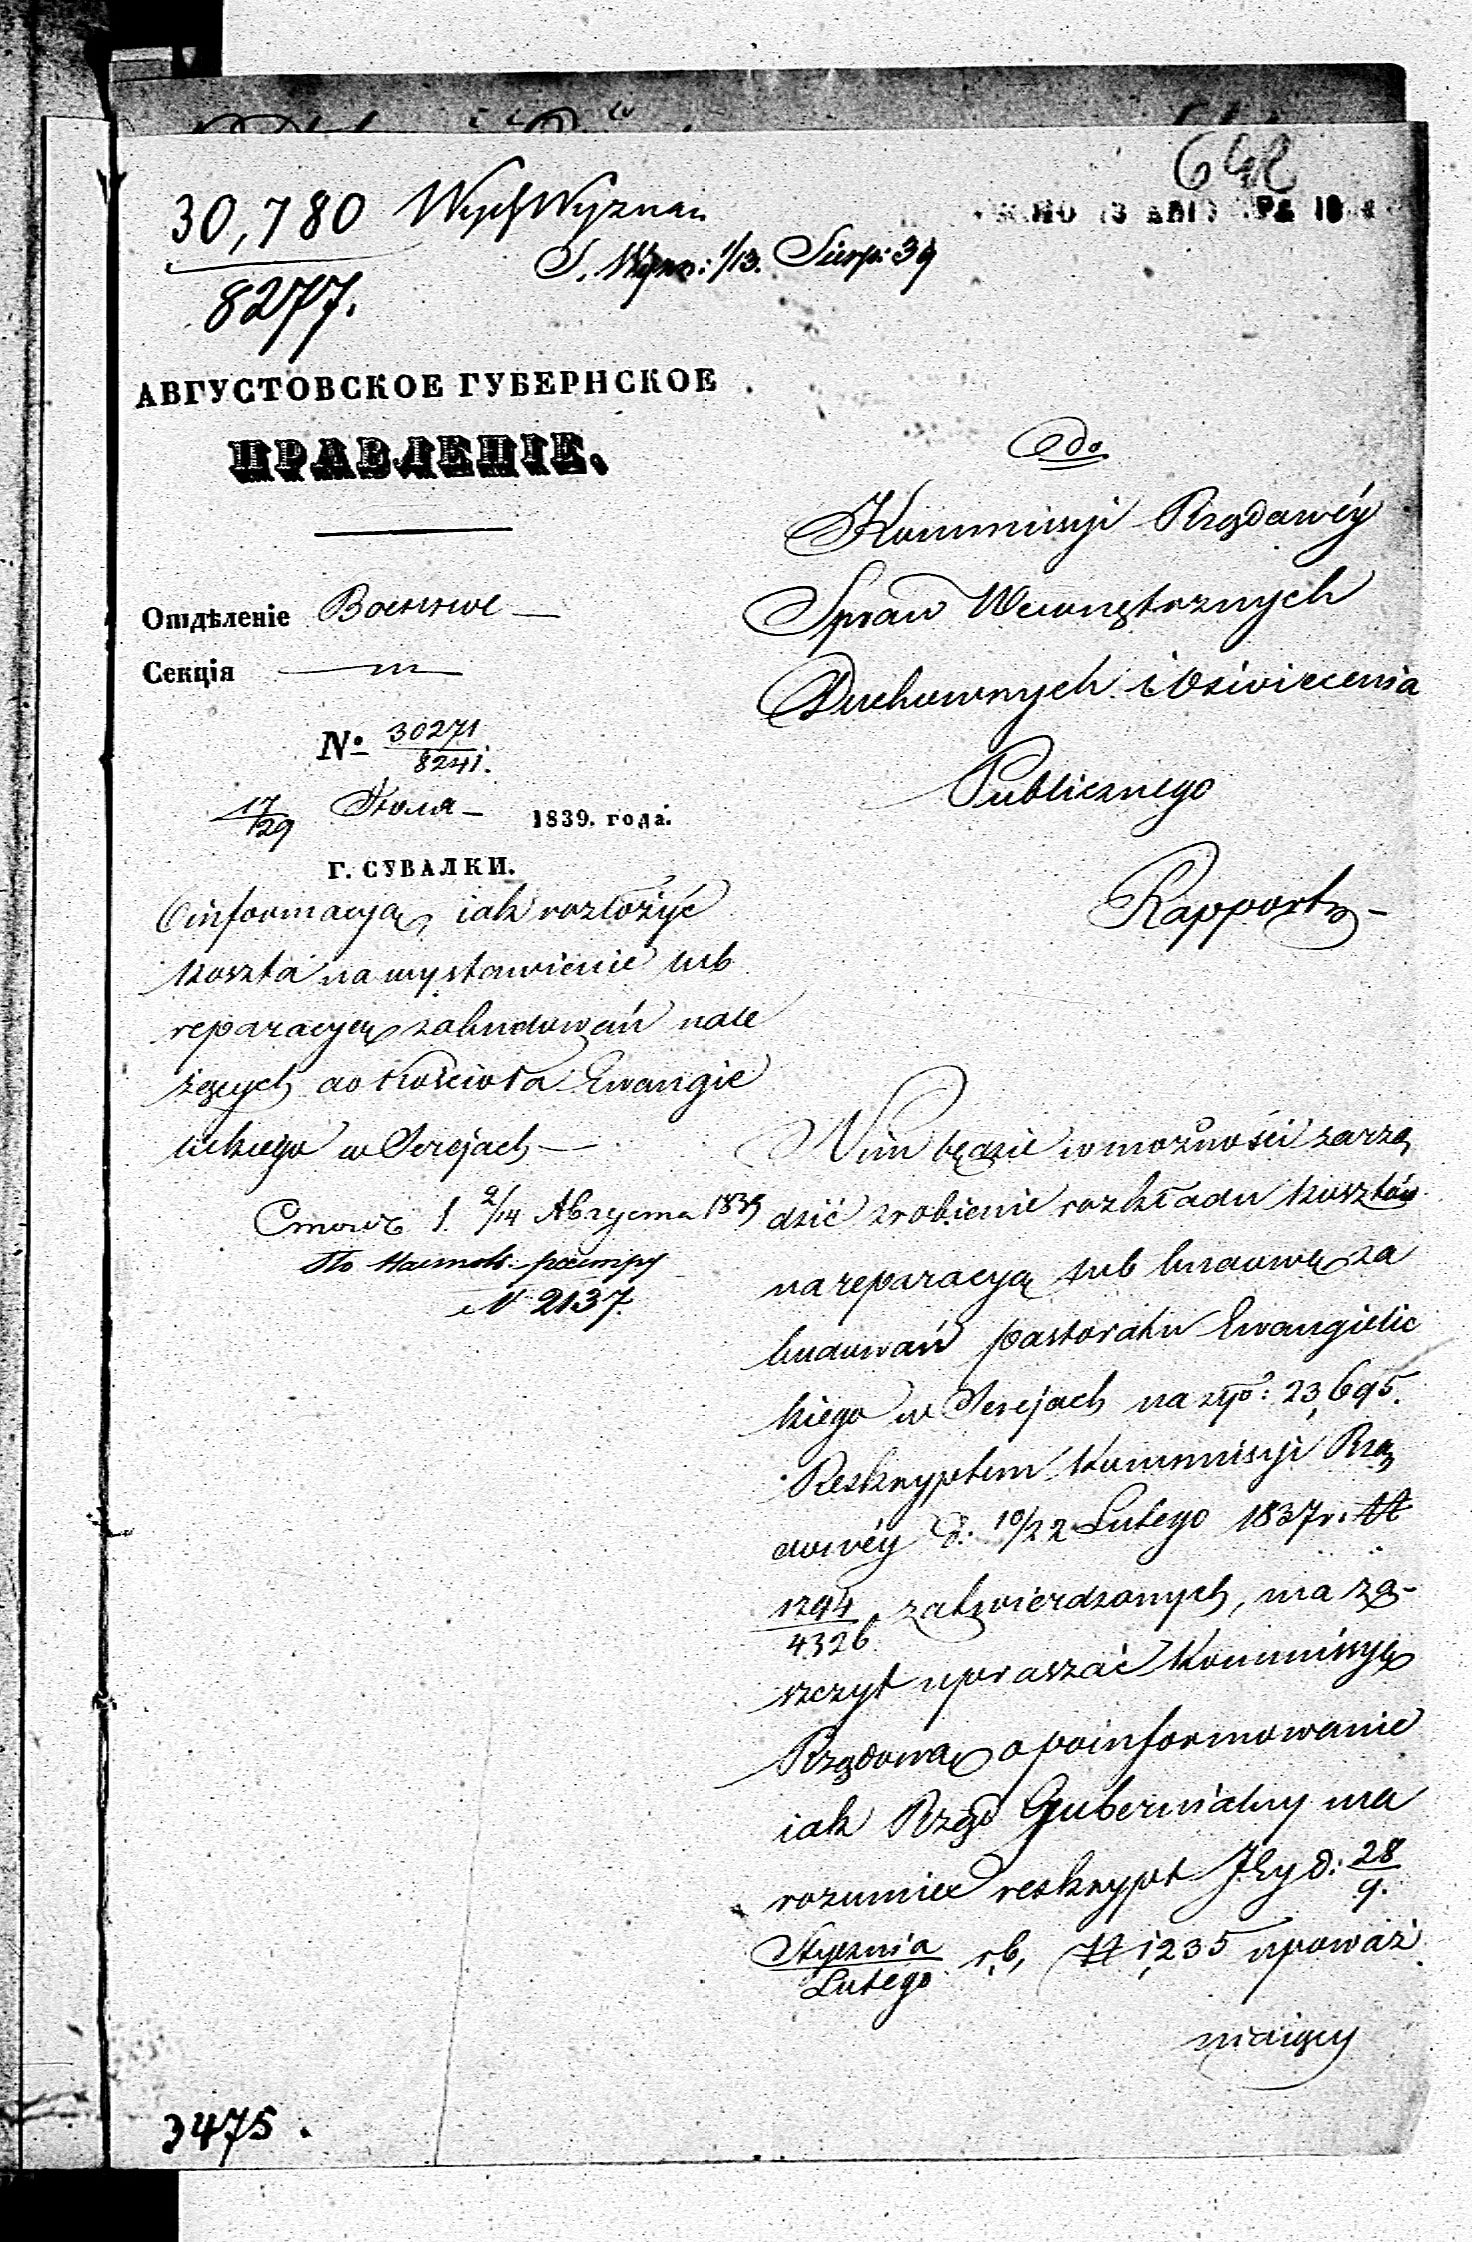 642
30,780 Wyd Wyznań
8277.
S. Wyzn: 1/13. Sierp: 39
АВГУСТОВСКОЕ ГУБЕРНСКОЕ
ПРАВЛЕНІЕ.
Отдѣленіе Военное
Секція
№ 30271
8241.
17/29 Іюля 1839. года.
Г. СУВАЛКИ.
O informacyą, iak rozłożyć
koszta na wystawienie lub
reparacyą zabudowań nale
żących do kościoła Ewangie
lickiego w Serejach
2/14 Августа 1839
По Настол. реестру
N 2137.
Do
Kommissyi Rządowéy
Spraw Wewnętrznych
Duchownych i Oświecenia
Publicznego
Rapport
Nim będzie w możności zarzą
dzić zrobienie rozkładu kosztów
na reparacyą lub budowę za
budowań pastoratu Ewangielic
kiego w Serejach na złp: 23,695.
Reskryptem Kommissyi Rzą
dowéy d. 10/22 Lutego 1837 r. N
1294
4326 zatwierdzonych, ma za-
szczyt upraszać Kommissyą
Rządową o poinformowanie
iak Rząd Gubernialny ma
rozumieć reskrypt Jéy d: 28
9.
Stycznia
Lutego r.b. N 1,235 upoważ
niaiący
3475.